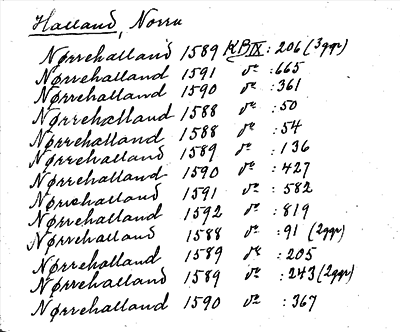 Halland, Norra
Nørrehalland 1589 KBIX : 206 (3ggr)
Nørrehalland 1591 do : 665
Nørrehalland 1590 do : 361
Nørrehalland 1588 do : 50
Nørrehalland 1588 do : 54
Nørrehalland 1589 do : 136
Nørrehalland 1590 do : 427
Nørrehalland 1591 do : 582
Nørrehalland 1592 do : 819
Nørrehalland 1588 do : 91 (2ggr)
Nørrehalland 1589 do : 205
Nørrehalland 1589 do : 243 (2ggr)
Nørrehalland 1590 do : 367